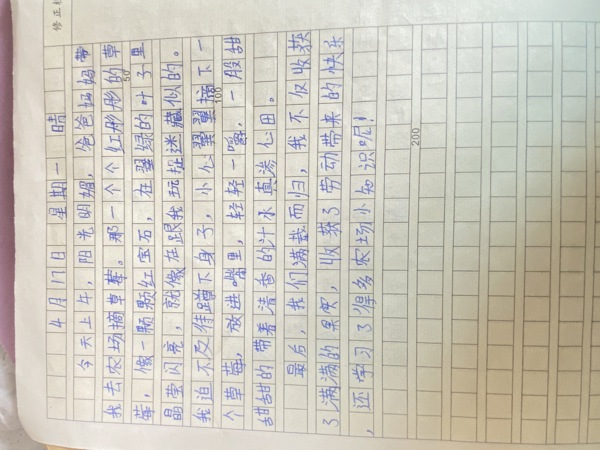 修正
4月17日 星期一 晴
今天上午，阳光明媚，爸爸妈妈带
我去农场摘草莓。那一个个红彤彤的草
莓，像一颗颗红宝石，在翠绿的叶子里
50
晶莹闪亮，就像在跟我玩捉迷藏似的。
我迫不及待蹲下身子，小心翼翼摘下一
100
个草莓，放进嘴里，轻轻一嚼，一股甜
甜甜的带着清香的汁水直渗心田。
最后，我们满载而归，我不仅收获
了满满的果实，收获了劳动带来的快乐
，还学习了得多农场小知识呢！
200